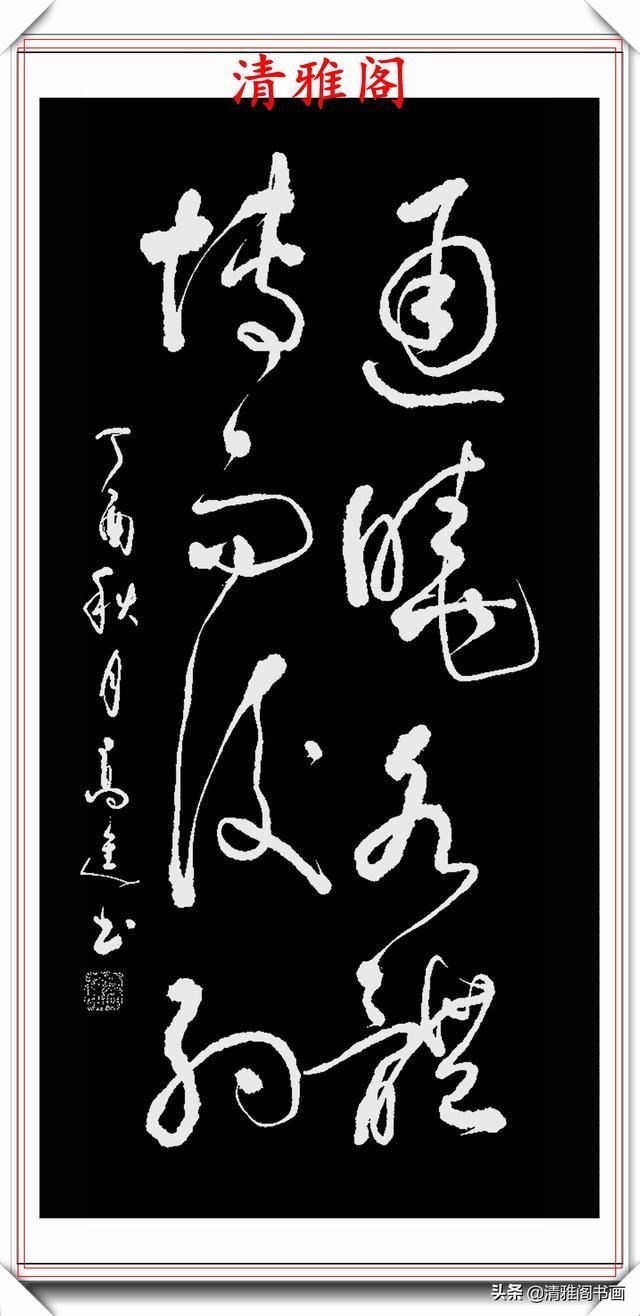 清雅阁
通晓各體
博而後約
丁酉秋月高進书
头条 @清雅阁书画